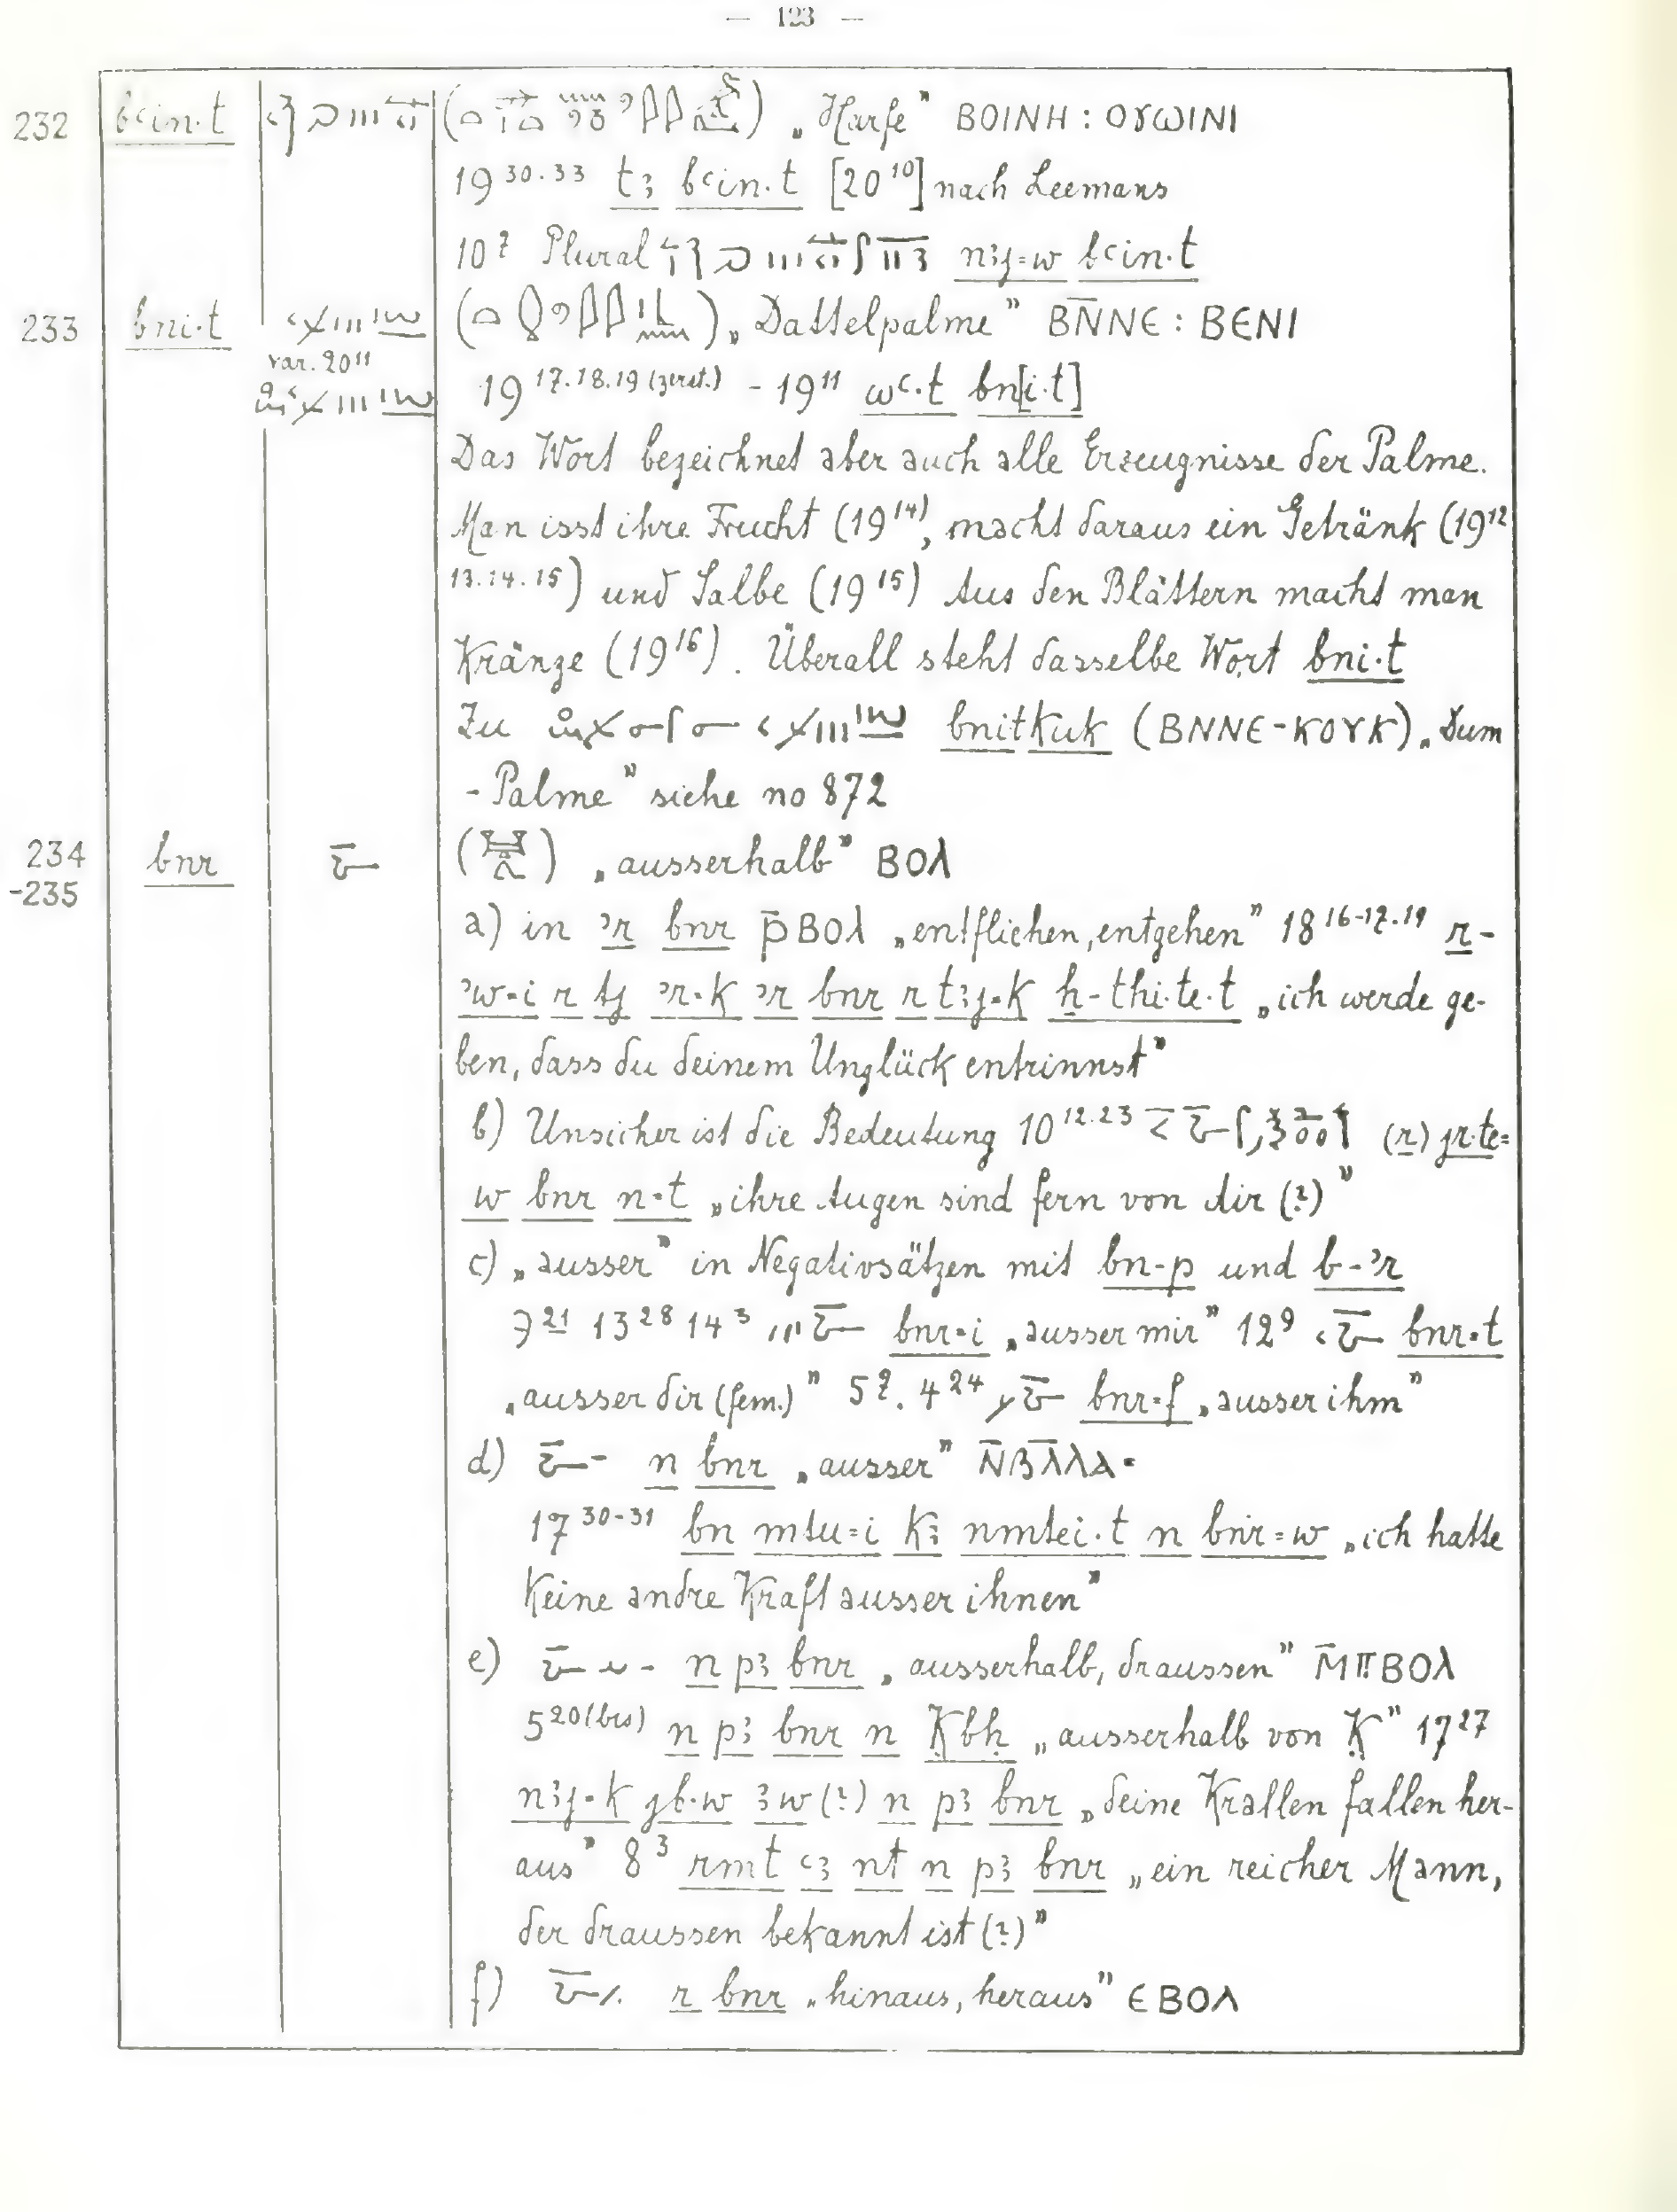 — 123 —
232 bꜥin·t ( ) „Harfe” ⲂⲞⲒⲚⲎ : ⲞⲨⲰⲒⲚⲒ
19 30·33 tꜣ bꜥin·t [20 10] nach Leemans
10 7 Plural nꜣj=w bꜥin·t
233 bni·t ( ) „Dattelpalme” ⲂⲚ̅ⲚⲈ : ⲂⲈⲚⲒ
var. 20 11
19 17·18·19 (zerst.) - 19 11 wꜥ·t bn[i·t]
Das Wort bezeichnet aber auch alle Erzeugnisse der Palme.
Man isst ihre Frucht (19 14), macht daraus ein Getränk (19 12
13·14·15) und Salbe (19 15) Aus den Blättern macht man
Kränze (19 16). Überall steht dasselbe Wort bni·t
Zu bnitkuk (ⲂⲚⲚⲈ-ⲔⲞⲨⲔ) „Dum
-Palme” siehe no 872
234 -235 bnr ( ) „ausserhalb” ⲂⲞⲖ
a) in ꜣr bnr ⲣ̅ⲂⲞⲖ „entfliehen, entgehen” 18 16-17·19 r-
ꜣw=i r tj ꜣr·k ꜣr bnr r tꜣj=k ḥ-thi·te·t „ich werde ge-
ben, dass du deinem Unglück entrinnst”
b) Unsicher ist die Bedeutung 10 12·23 (r) jr·te=
w bnr n·t „ihre Augen sind fern von dir (?)”
c) „ausser” in Negativsätzen mit bn-p und b-ꜣr
7 21 13 28 14 3 bnr=i „ausser mir” 12 9 bnr=t
„ausser dir (fem.)” 5 7. 4 24 bnr=f „ausser ihm”
d) n bnr „ausser” Ⲛ̅ⲂⲖ̅ⲖⲀ=
17 30-31 bn mtu=i kꜣ nmtei·t n bnr=w „ich hatte
Keine andre Kraft ausser ihnen”
e) n pꜣ bnr „ausserhalb, draussen” Ⲙ̅ⲠⲂⲞⲖ
5 20(bis) n pꜣ bnr n Ḳbḥ „ausserhalb von Ḳ” 17 27
nꜣj=k jb·w ꜣw (?) n pꜣ bnr „deine Krallen fallen her-
aus” 8 3 rmt ꜥꜣ nt n pꜣ bnr „ein reicher Mann,
der draussen bekannt ist (?)”
f) r bnr „hinaus, heraus” ⲈⲂⲞⲖ